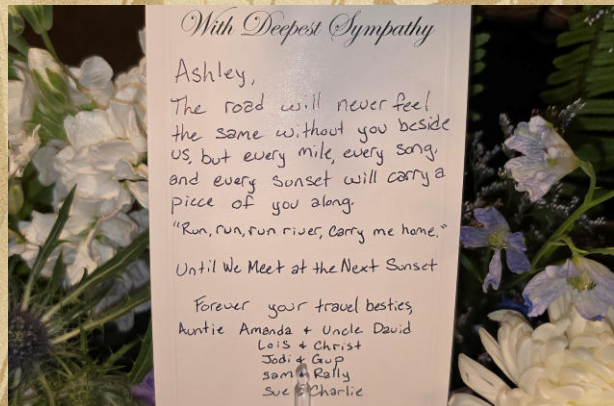 With Deepest Sympathy
Ashley,
The road will never feel
the same without you beside
us, but every mile, every song,
and every sunset will carry a
piece of you along.
"Run, run, run river, carry me home."
Until We Meet at the Next Sunset
Forever your travel besties,
Auntie Amanda + Uncle David
Lois + Christ
Jodi + Gup
Sam + Rally
Sue + Charlie